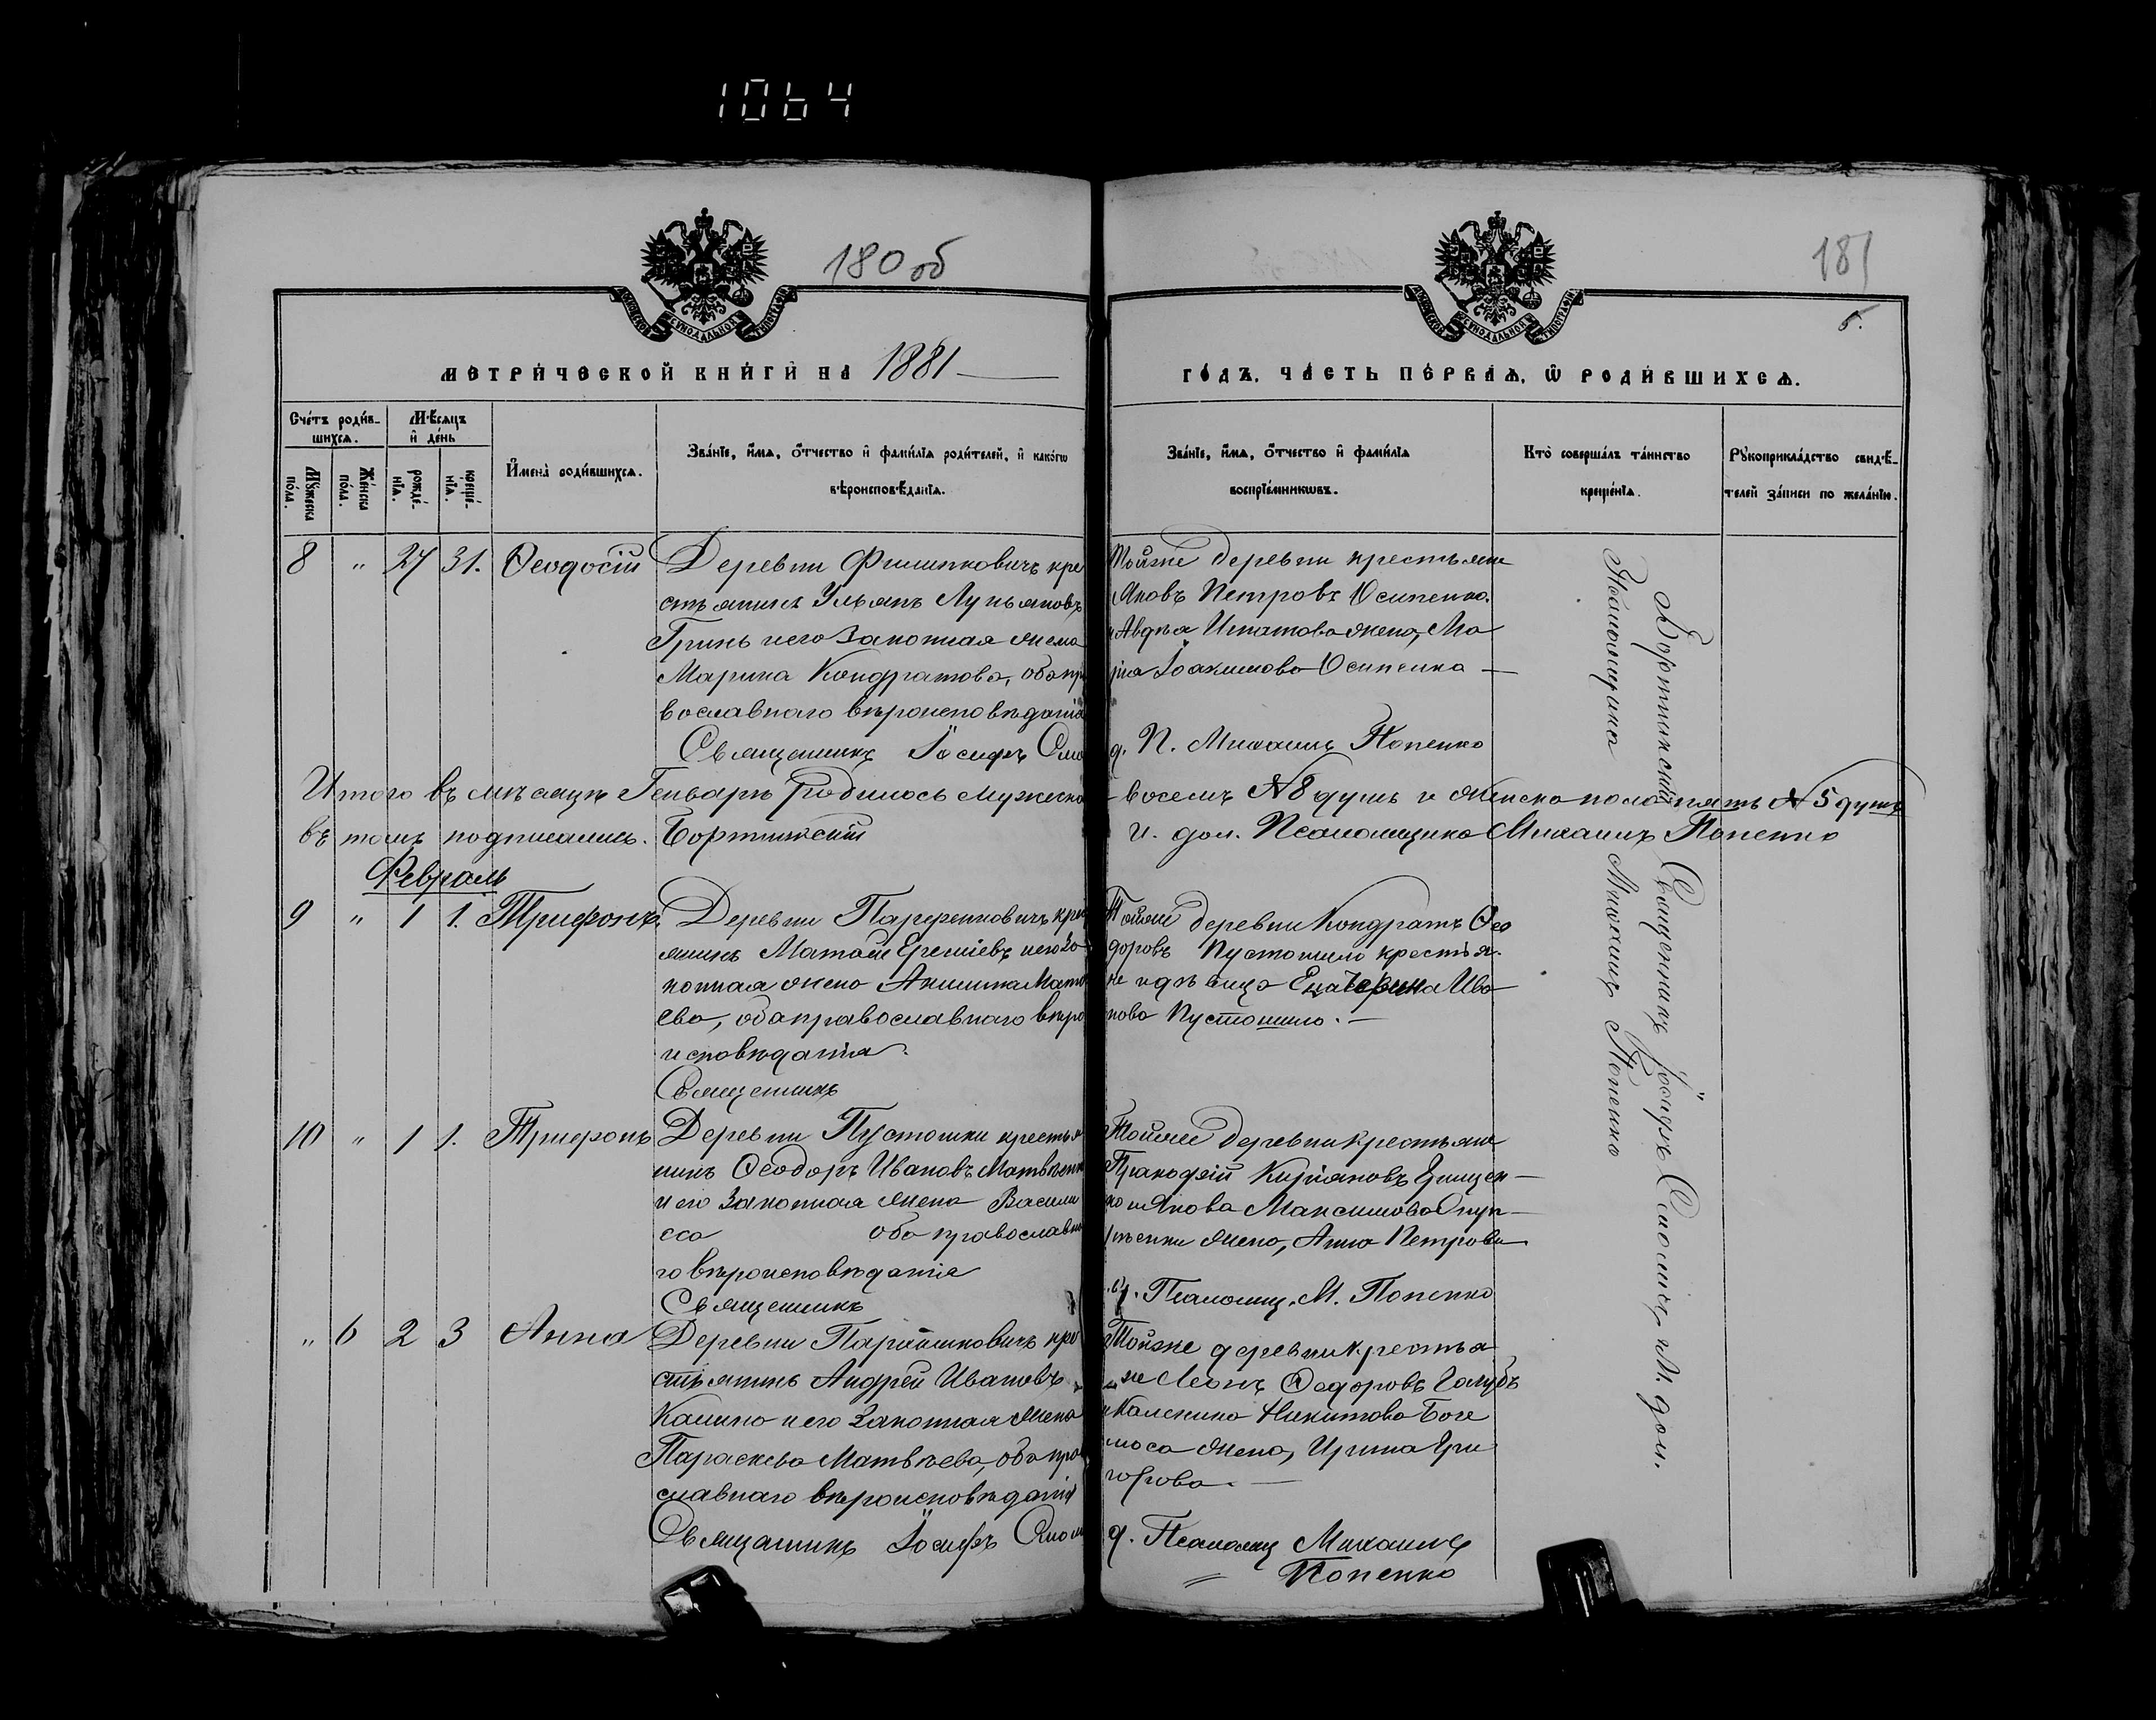 1064
180 об
181
5.
МОСКОВСКОЙ СѴНОДАЛЬНОЙ ТИПОГРАФІИ
МОСКОВСКОЙ СѴНОДАЛЬНОЙ ТИПОГРАФІИ
МЕТРИЧЕСКОЙ КНИГИ НА 1881
ГОДЪ, ЧАСТЬ ПЕРВАЯ, Ѿ РОДИВШИХСЯ.
Счетъ родив-
шихся.
Мѣсяцъ
и день
Мужеска
пола.
Женска
пола.
рожде-
нія.
креще-
нія.
Имена родившихся.
Званіе, имя, отчество и фамилія родителей, и какогѡ
вѣроисповѣданія.
Званіе, имя, отчество и фамилія
воспріемникѡвъ.
Кто совершалъ таинство
крещенія.
Рукоприкладство свидѣ-
телей записи по желанію.
8 " 27 31. Ѳеодосій
Деревни Филипковичъ кре
стьянинъ Ульянъ Лукьяновъ
Гринь и его законная жена
Марина Кондратова, оба пр
вославнаго вѣроисповѣданія
Священникъ Іосифъ Смо
Тойже деревни крестьяне
Яковъ Петровъ Осипенко.
и Авдѣя Игнатова жена, Ма
рія Іоакимова Осипенко —
д. П. Михаилъ Попенко
Итого въ мѣсяцѣ Генварѣ родилось мужеска
восемь № 8 душъ и женска пола пять № 5 душъ
въ томъ подписались. Бортнижскій
и. дол. Псаломщика Михаилъ Попенко
Февраль
9 " 1 1. Трифонъ.
Деревни Парфенковичъ крес
янинъ Матѳей и его за
конная жена Матѳ
ева, оба православнаго вѣро
исповѣданія.
Священникъ
Тойже деревни Кондратъ Ѳео
доровъ Пустошило крестья-
не и дѣвица Екатерина Ива
нова Пустошило. —
10 " 1 1. Трифонъ
Деревни Пустошки крестья
нинъ Ѳеодоръ Ивановъ Матвѣенк
и его законная жена Васили
са оба православна
го вѣроисповѣданія
Священникъ
Тойже деревни крестьяне
Прокофій Киріановъ Грищен-
ко и Якова Максимова
жена, Анна Петрова
д. Псаломщ. М. Попенко
" 6 2 3 Анна
Деревни кре
стьянинъ Андрей Ивановъ
Калино и его законная жена
Параскева Матвѣева, оба прав
славнаго вѣроисповѣданія
Священникъ Іосифъ Смол
Тойже деревни крестья
не Леонъ Ѳедоровъ Голубъ
и Каленика Никитова Боге
моса жена, Ирина Гри
горова. —
д. Псаломщ Михаилъ
Попенко
Священникъ Іосифъ Смоличъ и И. дол.
Псаломщика Михаилъ Попенко